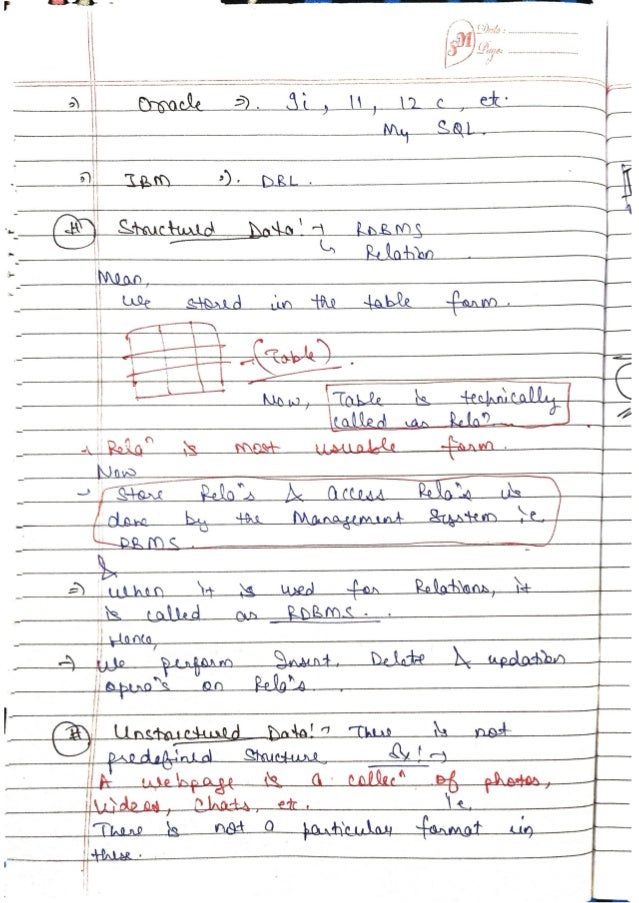 SM Date:
Page:
=) Oracle =). 9i, 11, 12 c, etc.
My SQL.
=) IBM =). DBL.
(#) Structured Data! → RDBMS
↳ Relation
Mean,
We stored in the table form.
→ (Table).
Now, Table is technically
called as Relaⁿ
→ Relaⁿ is most usuable form.
Now
→ Store Relaⁿs & access Relaⁿs is
done by the Management System i.e
DBMS.
&
=) When it is used for Relations, it
is called as RDBMS.
Hence,
→ We perform Insert, Delete & updation
operaⁿs on Relaⁿs.
(#) Unstructured Data! → There is not
predefined structure Ex! →
A webpage is a collecⁿ of photos,
Videos, Chats, etc. i.e,
There is not a particular format in
these.